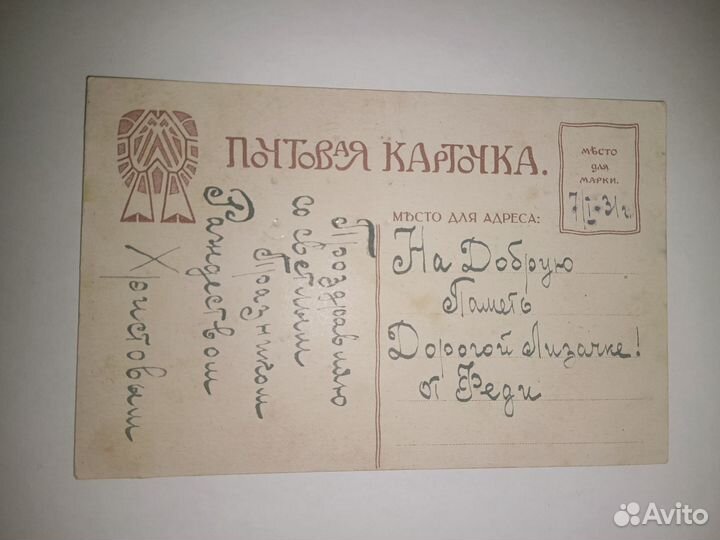 ПОЧТОВАЯ КАРТОЧКА.
МѢСТО
ДЛЯ
МАРКИ.
7/I-31 г.
МѢСТО ДЛЯ АДРЕСА:
На Добрую
Память
Дорогой Лизачке!
от Феди
Проздравляю
со светлым
Празником
Рандеством
Христовым
Avito